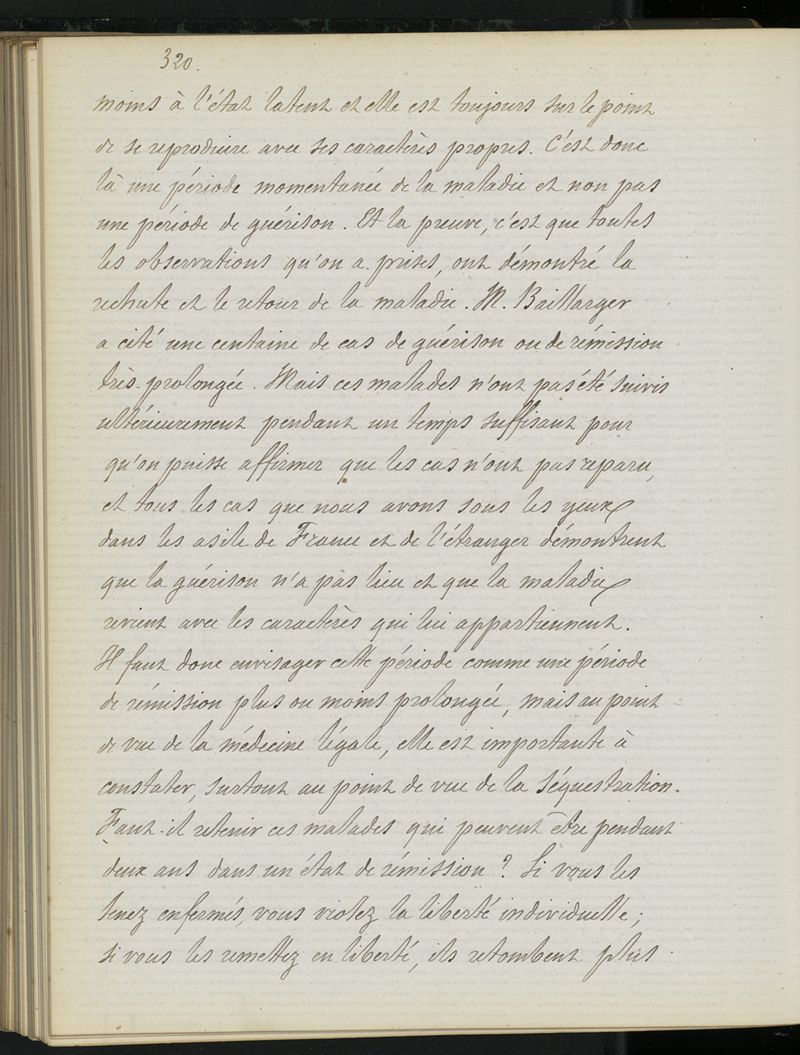 320.
moins à l'état latent et elle est toujours sur le point
de se reproduire avec ses caractères propres. C'est donc
là une période momentanée de la maladie et non pas
une période de guérison. Et la preuve, c'est que toutes
les observations qu'on a prises, ont démontré la
rechute et le retour de la maladie. M. Baillarger
a cité une centaine de cas de guérison ou de rémission
très-prolongée. Mais ces malades n'ont pas été suivis
ultérieurement pendant un temps suffisant pour
qu'on puisse affirmer que les cas n'ont pas reparu,
et tous les cas que nous avons sous les yeux
dans les asile de France et de l'étranger démontrent
que la guérison n'a pas lieu et que la maladie
revient avec les caractères qui lui appartiennent.
Il faut donc envisager cette période comme une période
de rémission plus ou moins prolongée, mais au point
de vue de la médecine légale, elle est importante à
constater, surtout au point de vue de la séquestration.
Faut-il retenir ces malades qui peuvent être pendant
deux ans dans un état de rémission ? Si vous les
tenez enfermés, vous violez la liberté individuelle ;
si vous les remettez en liberté, ils retombent plus